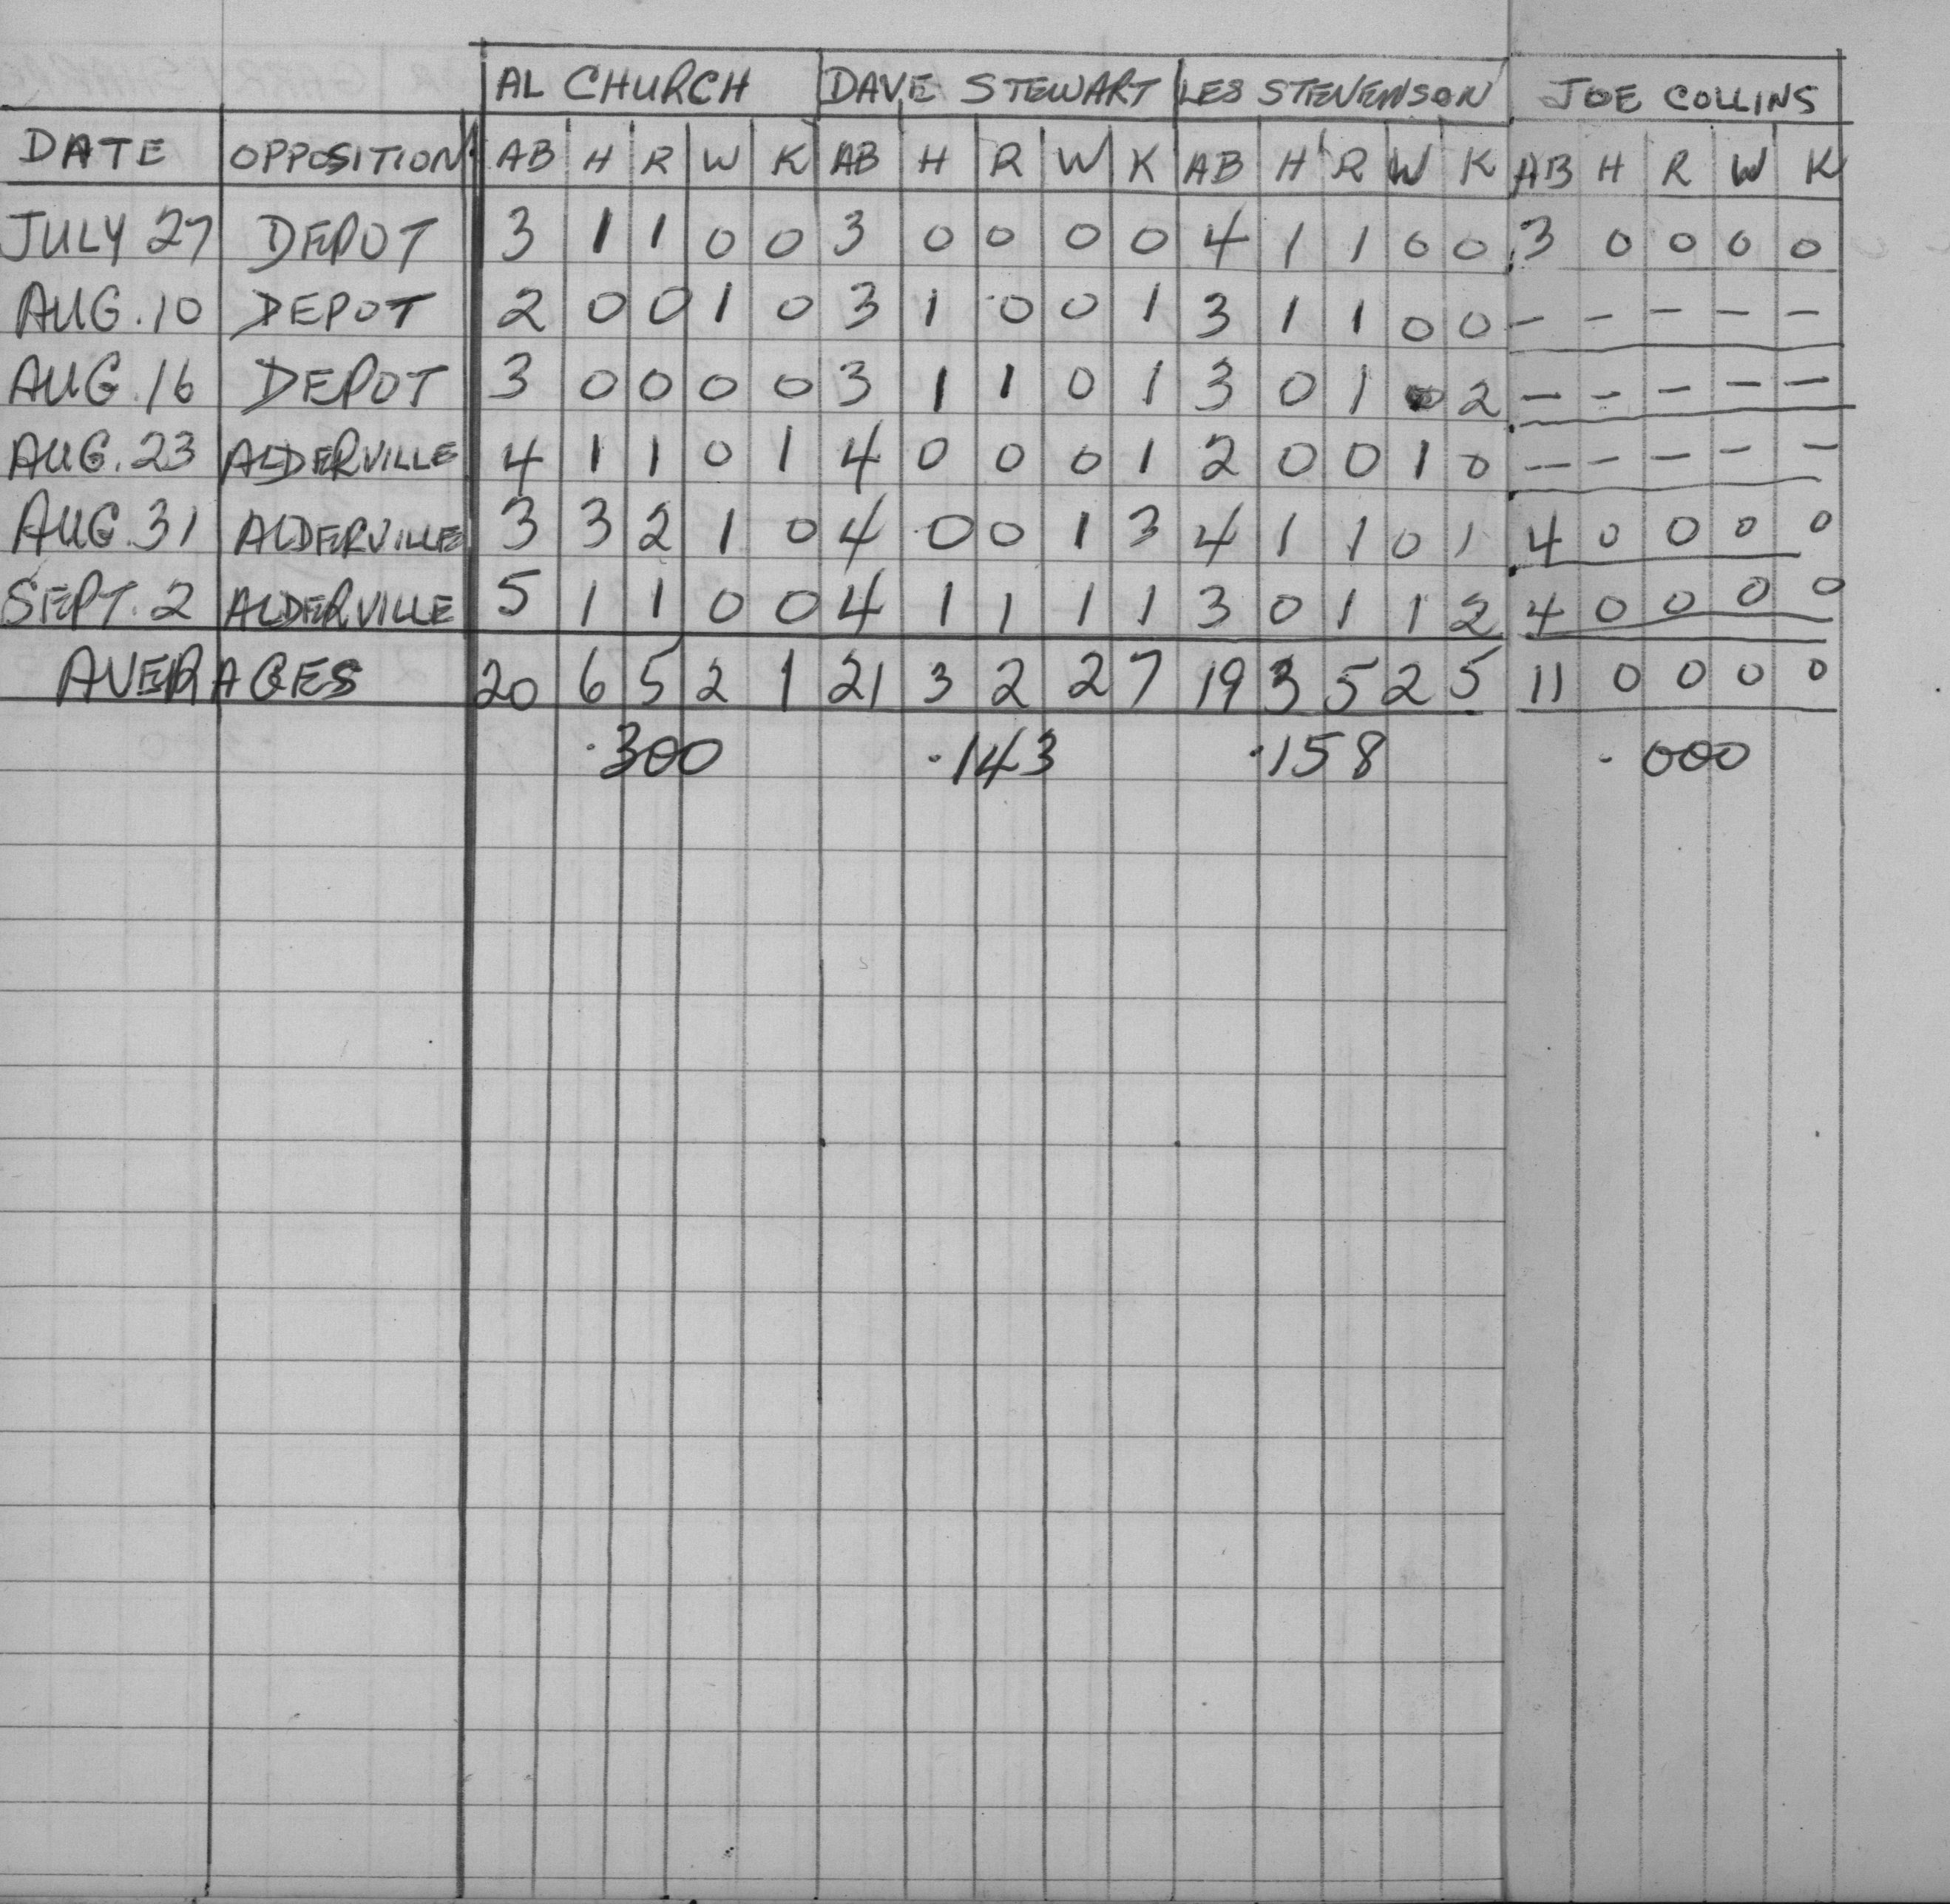 AL CHURCH DAVE STEWART LES STEVENSON JOE COLLINS
DATE OPPOSITION AB H R W K AB H R W K AB H R W K AB H R W K
JULY 27 DEPOT 3 1 1 0 0 3 0 0 0 0 4 1 1 0 0 3 0 0 0 0
AUG. 10 DEPOT 2 0 0 1 0 3 1 0 0 1 3 1 1 0 0 - - - - -
AUG. 16 DEPOT 3 0 0 0 0 3 1 1 0 1 3 0 1 0 2 - - - - -
AUG. 23 ALDERVILLE 4 1 1 0 1 4 0 0 0 1 2 0 0 1 0 - - - - -
AUG. 31 ALDERVILLE 3 3 2 1 0 4 0 0 1 3 4 1 1 0 1 4 0 0 0 0
SEPT. 2 ALDERVILLE 5 1 1 0 0 4 1 1 1 1 3 0 1 1 2 4 0 0 0 0
AVERAGES 20 6 5 2 1 21 3 2 2 7 19 3 5 2 5 11 0 0 0 0
.300 .143 .158 .000